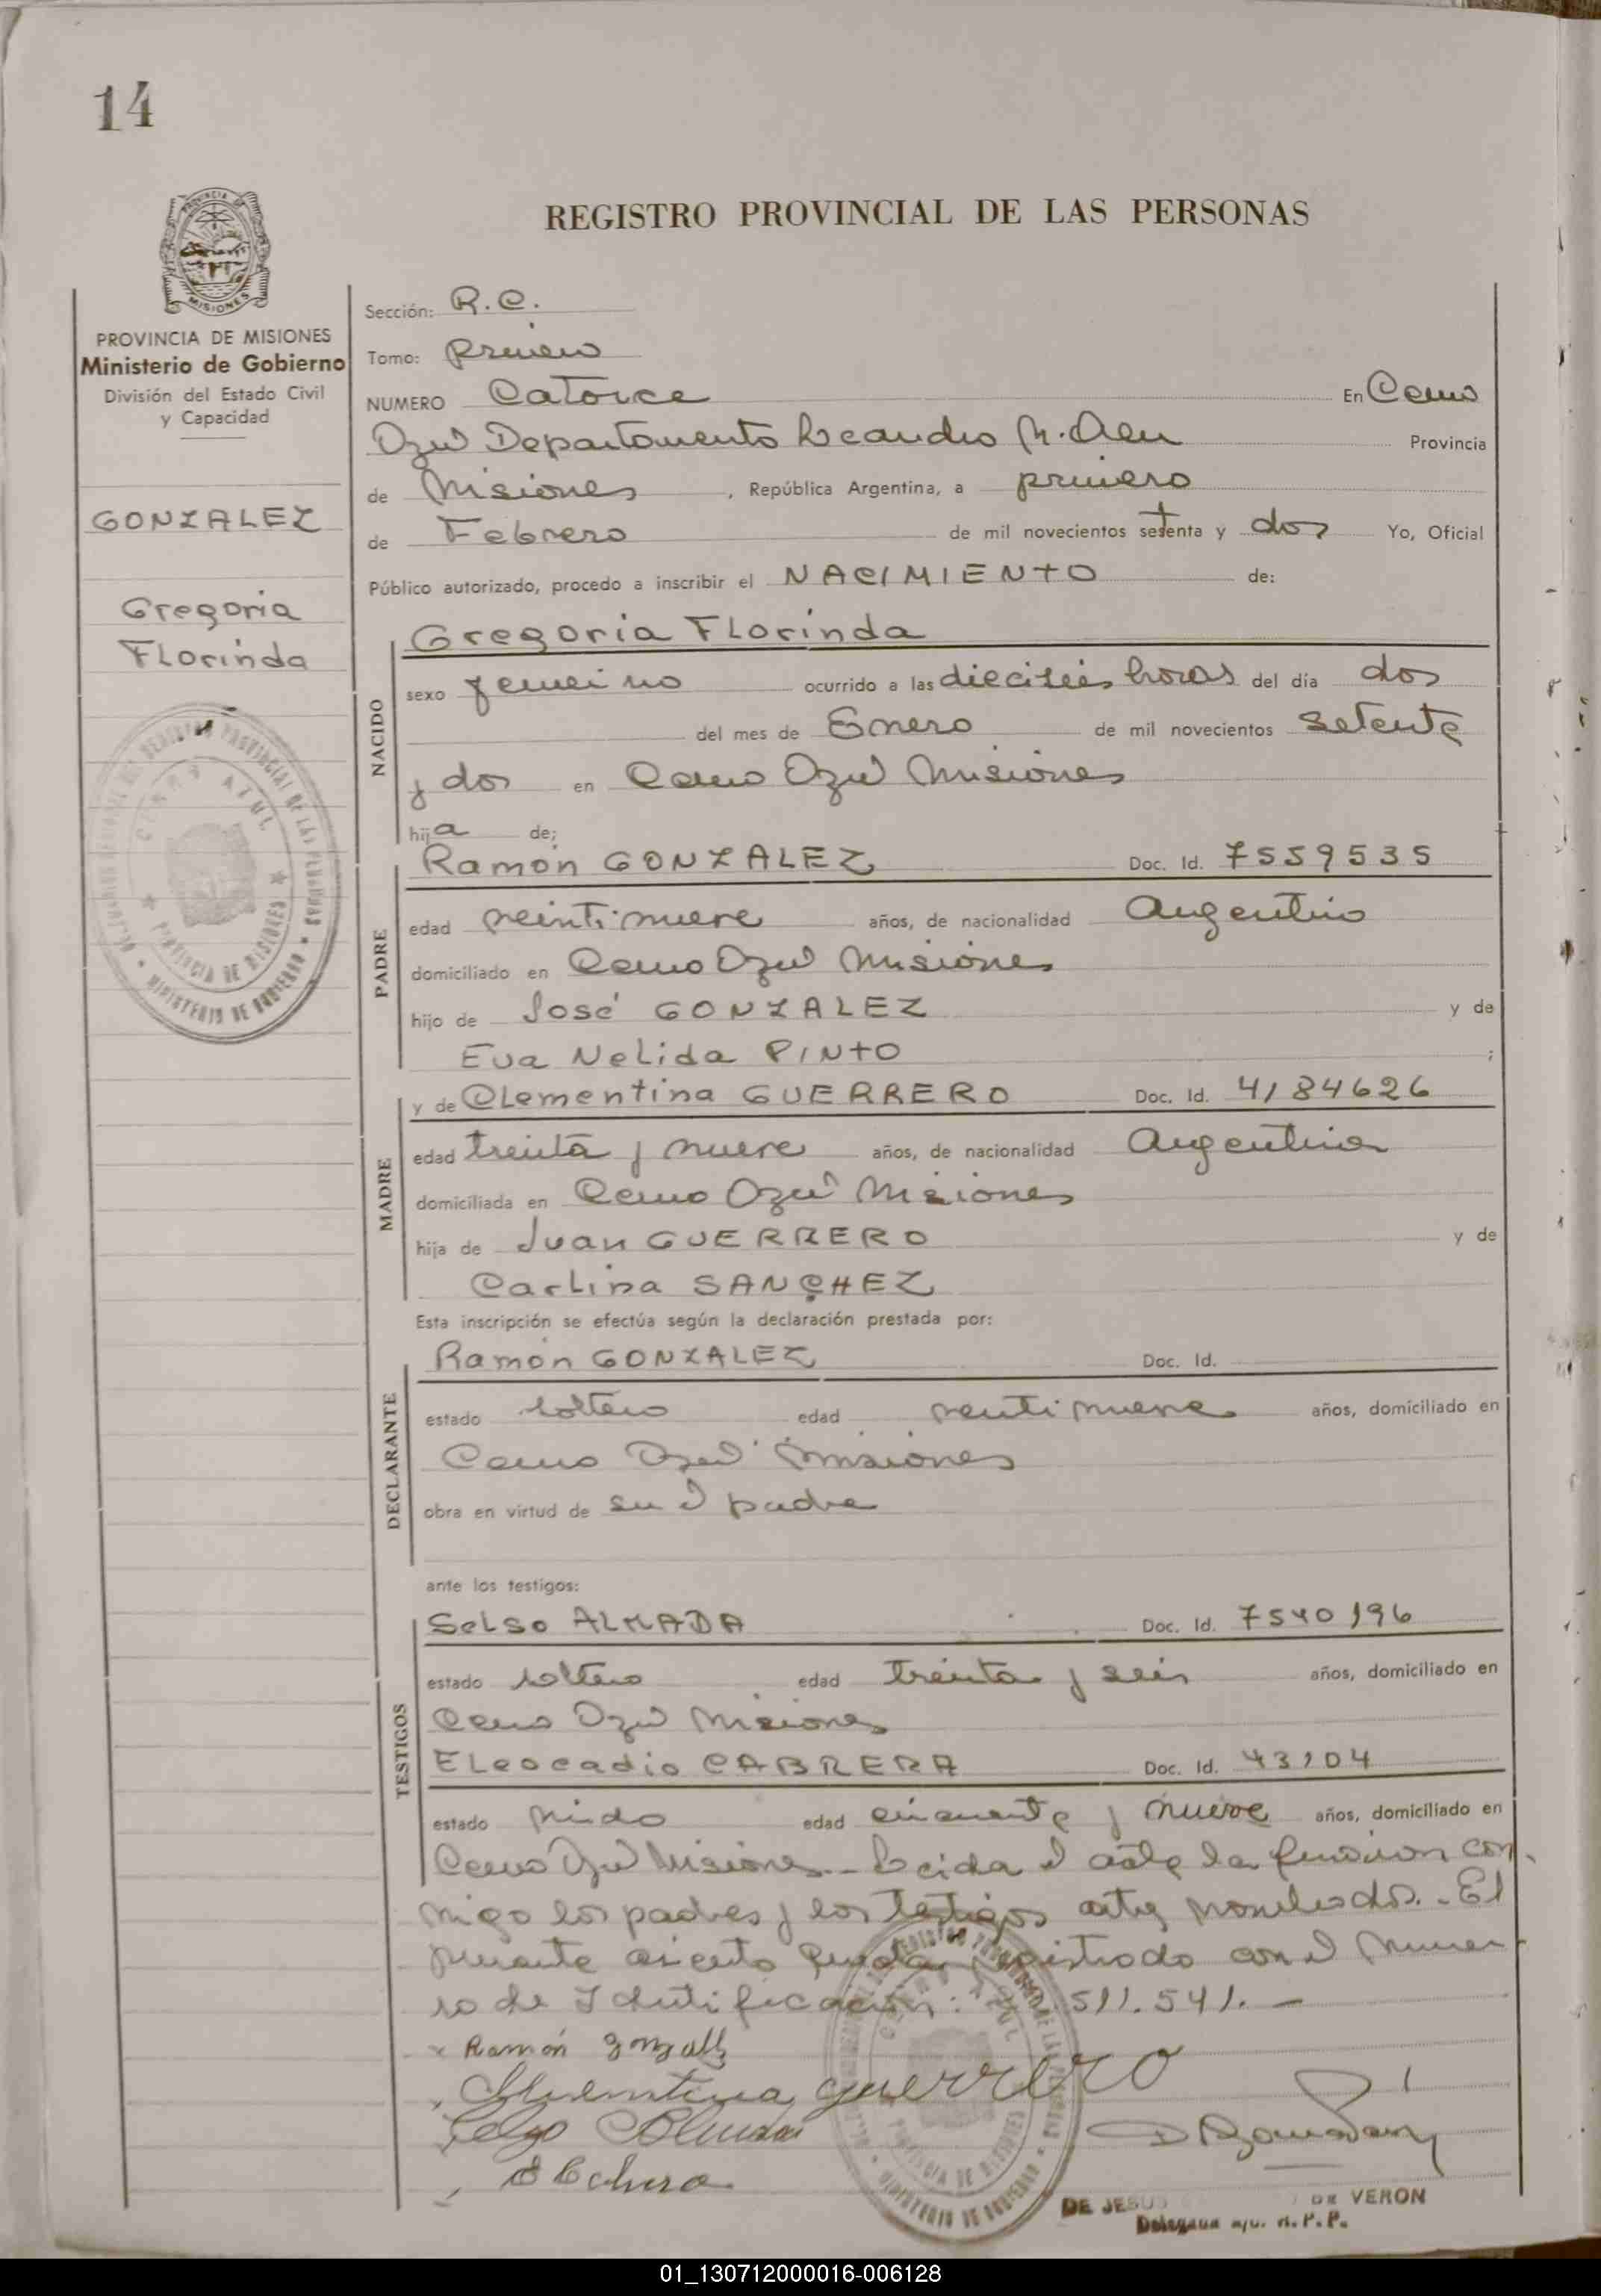 14
REGISTRO PROVINCIAL DE LAS PERSONAS
PROVINCIA DE MISIONES
Ministerio de Gobierno
División del Estado Civil
y Capacidad
GONZALEZ
Gregoria
Florinda
Sección: R.C.
Tomo: primero
NUMERO Catorce En Cerro
Azul Departamento Leandro N. Alem Provincia
de Misiones, República Argentina, a primero
de Febrero de mil novecientos setenta y dos Yo, Oficial
Público autorizado, procedo a inscribir el NACIMIENTO de:
NACIDO
Gregoria Florinda
sexo femenino ocurrido a las dieciseis horas del día dos
del mes de Enero de mil novecientos setenta
y dos en Cerro Azul Misiones
hija de;
PADRE
Ramón GONZALEZ Doc. Id. 7559535
edad veintinueve años, de nacionalidad Argentino
domiciliado en Cerro Azul Misiones
hijo de José GONZALEZ y de
Eva Nelida PINTO ;
MADRE
y de Clementina GUERRERO Doc. Id. 4184626
edad treinta y nueve años, de nacionalidad Argentina
domiciliada en Cerro Azul Misiones
hija de Juan GUERRERO y de
Carlina SANCHEZ
Esta inscripción se efectúa según la declaración prestada por:
DECLARANTE
Ramón GONZALEZ Doc. Id.
estado soltero edad ventinueve años, domiciliado en
Cerro Azul Misiones
obra en virtud de ser el padre
ante los testigos:
TESTIGOS
Selso ALMADA Doc. Id. 7540196
estado soltero edad treinta y seis años, domiciliado en
Cerro Azul Misiones
Eleocadio CABRERA Doc. Id. 43104
estado viudo edad cincuenta y nueve años, domiciliado en
Cerro Azul Misiones.- Leida el acta la firman con
migo los padres y los testigos antes nombrados.- El
presente asiento queda registrado con el nume
ro de Identificación: 511.541.-
Ramón
guerrero
DE JESUS DE VERON
Delegada R.P.P.
01_130712000016-006128